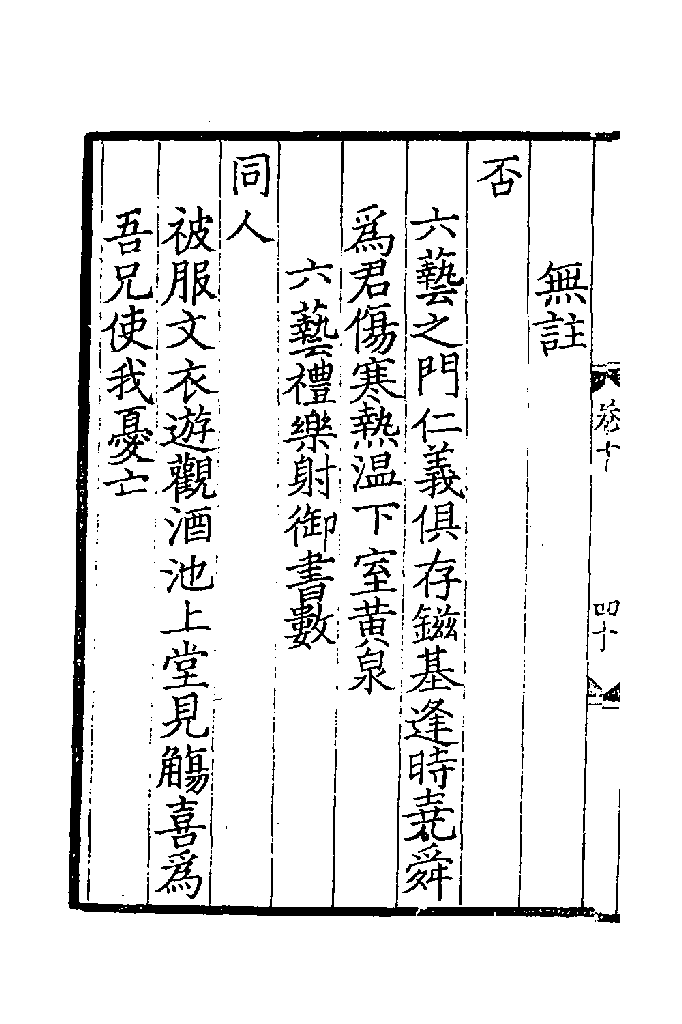 卷十
四十
無註
否
六藝之門仁義俱存鎡基逢時堯舜
爲君傷寒熱温下室黃泉
六藝禮樂射御書數
同人
被服文衣遊觀酒池上堂見觴喜爲
吾兄使我憂亡